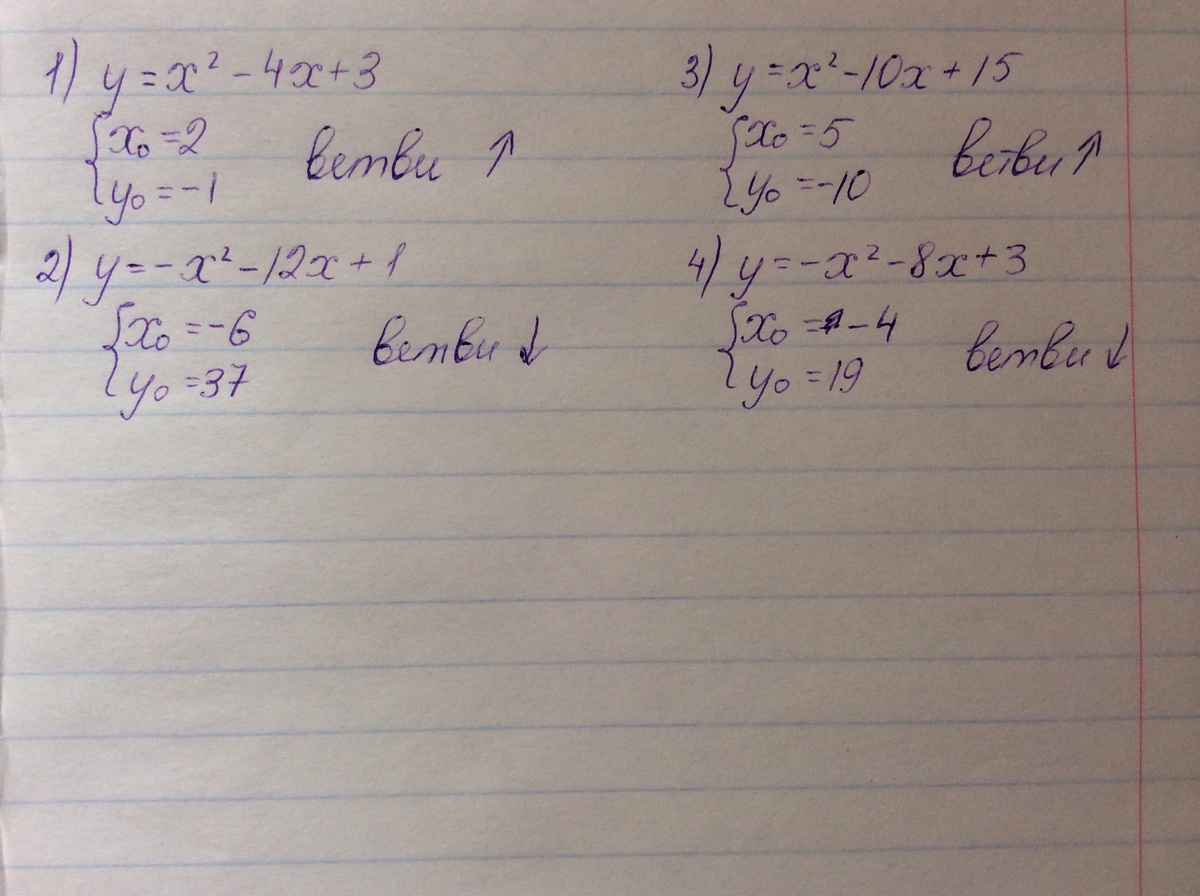 1) y = x² - 4x + 3
{ x₀ = 2
y₀ = -1
ветви ↑
2) y = -x² - 12x + 1
{ x₀ = -6
y₀ = 37
ветви ↓
3) y = x² - 10x + 15
{ x₀ = 5
y₀ = -10
ветви ↑
4) y = -x² - 8x + 3
{ x₀ = -4
y₀ = 19
ветви ↓